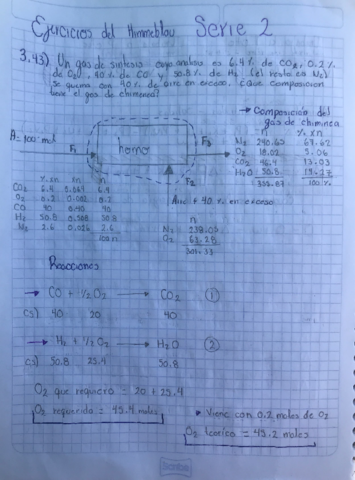 Ejercicios del Himmelblau Serie 2
3.43) Un gas de síntesis cuyo analisis es 6.4% de CO2, 0.2%
de O2, 40% de CO y 50.8% de H2 (el resto es N2)
Se quema con 40% de aire en exceso. ¿Que composicion
tiene el gas de chimenea?
→ Composición del
gas de chimenea
n % xn
N2 240.65 67.62
O2 18.02 5.06
CO2 46.4 13.03
H2O 50.8
100%
A= 100 mol
F1
horno
F3
F2
Aire + 40% en exceso
% xn xn n
CO2 6.4 0.064 6.4
O2 0.2 0.002 0.2
CO 40 0.40 40
H2 50.8 0.508 50.8
N2 2.6 0.026 2.6
100 n
n
N2 238.05
O2 63.28
301.33
Reacciones
→ CO + ½ O2 → CO2 ①
cs) 40 20 40
→ H2 + ½ O2 → H2O ②
cs) 50.8 25.4 50.8
O2 que requiero = 20 + 25.4
O2 requerido = 45.4 moles
Viene con 0.2 moles de O2
O2 teorico = 45.2 moles
Scribe